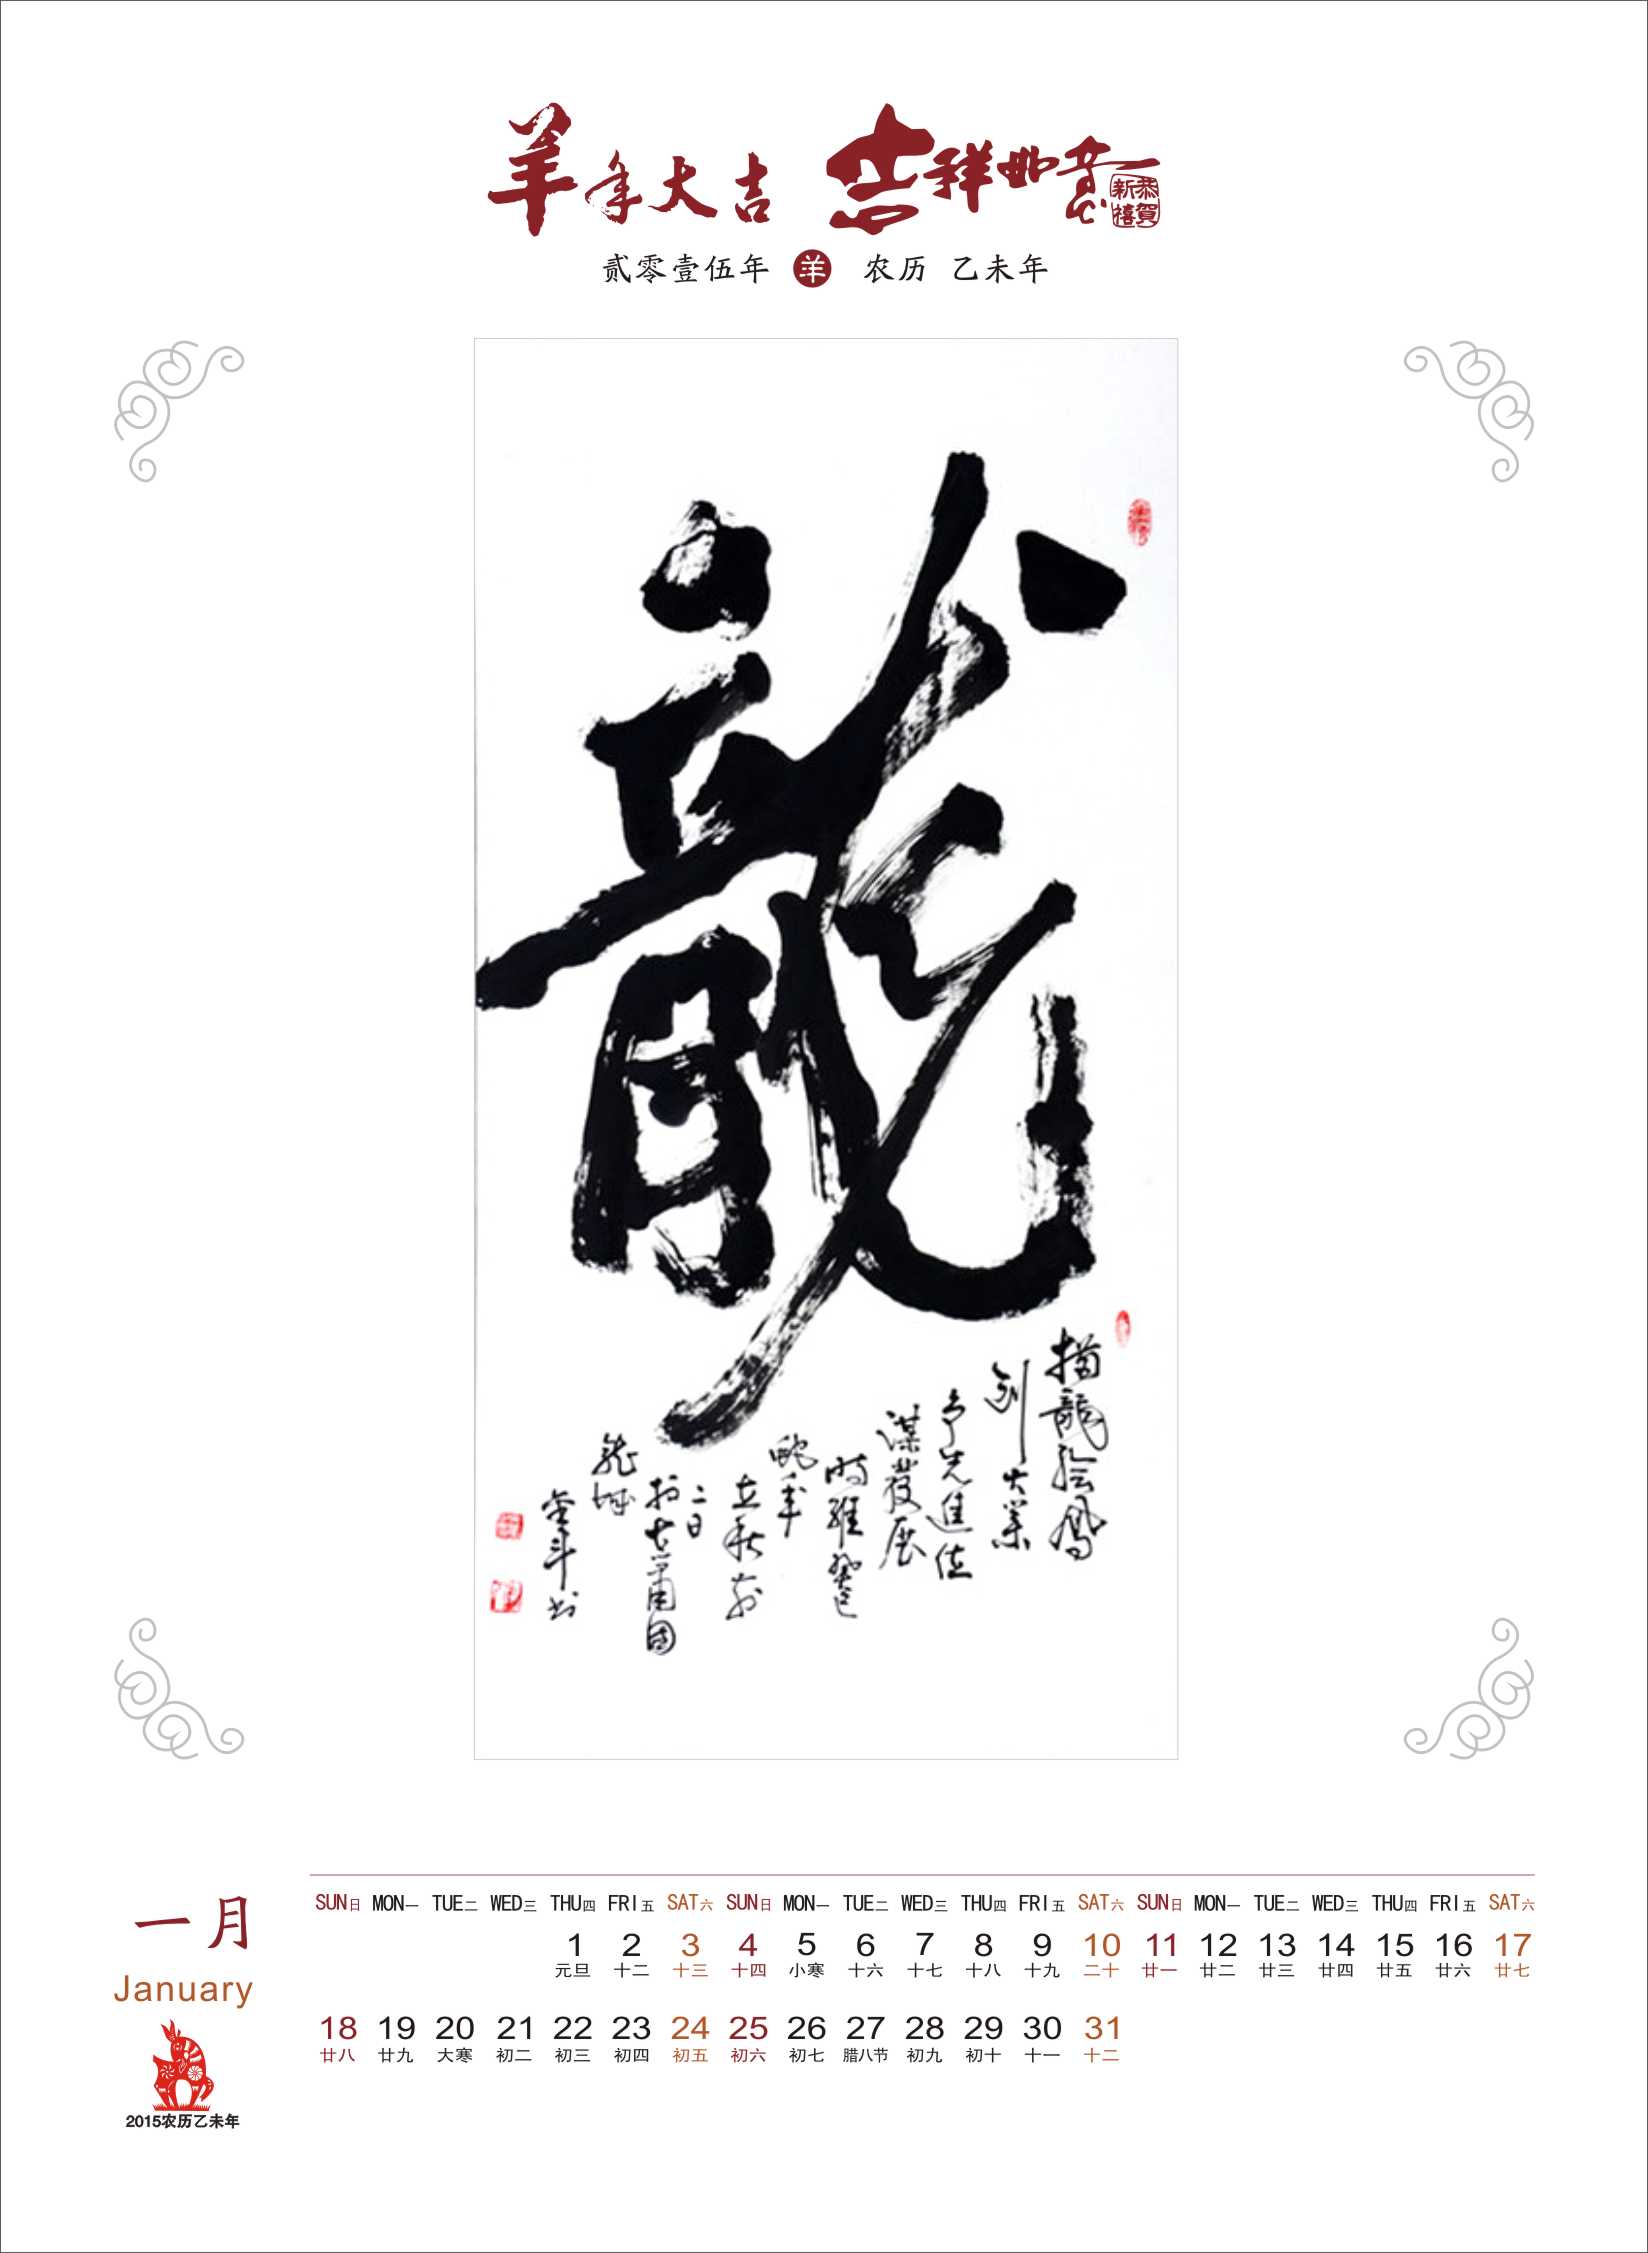 羊年大吉 吉祥如意
恭賀新禧
贰零壹伍年 羊 农历 乙未年
龍
描龍绘鳳
创大業
争先進位
謀發展
时維癸巳
蛇年
立秋前
二日
於古蕭國
龍城
金斗书
一月
January
2015农历乙未年
SUN日 MON一 TUE二 WED三 THU四 FRI五 SAT六 SUN日 MON一 TUE二 WED三 THU四 FRI五 SAT六 SUN日 MON一 TUE二 WED三 THU四 FRI五 SAT六
1 2 3 4 5 6 7 8 9 10 11 12 13 14 15 16 17
元旦 十二 十三 十四 小寒 十六 十七 十八 十九 二十 廿一 廿二 廿三 廿四 廿五 廿六 廿七
18 19 20 21 22 23 24 25 26 27 28 29 30 31
廿八 廿九 大寒 初二 初三 初四 初五 初六 初七 腊八节 初九 初十 十一 十二